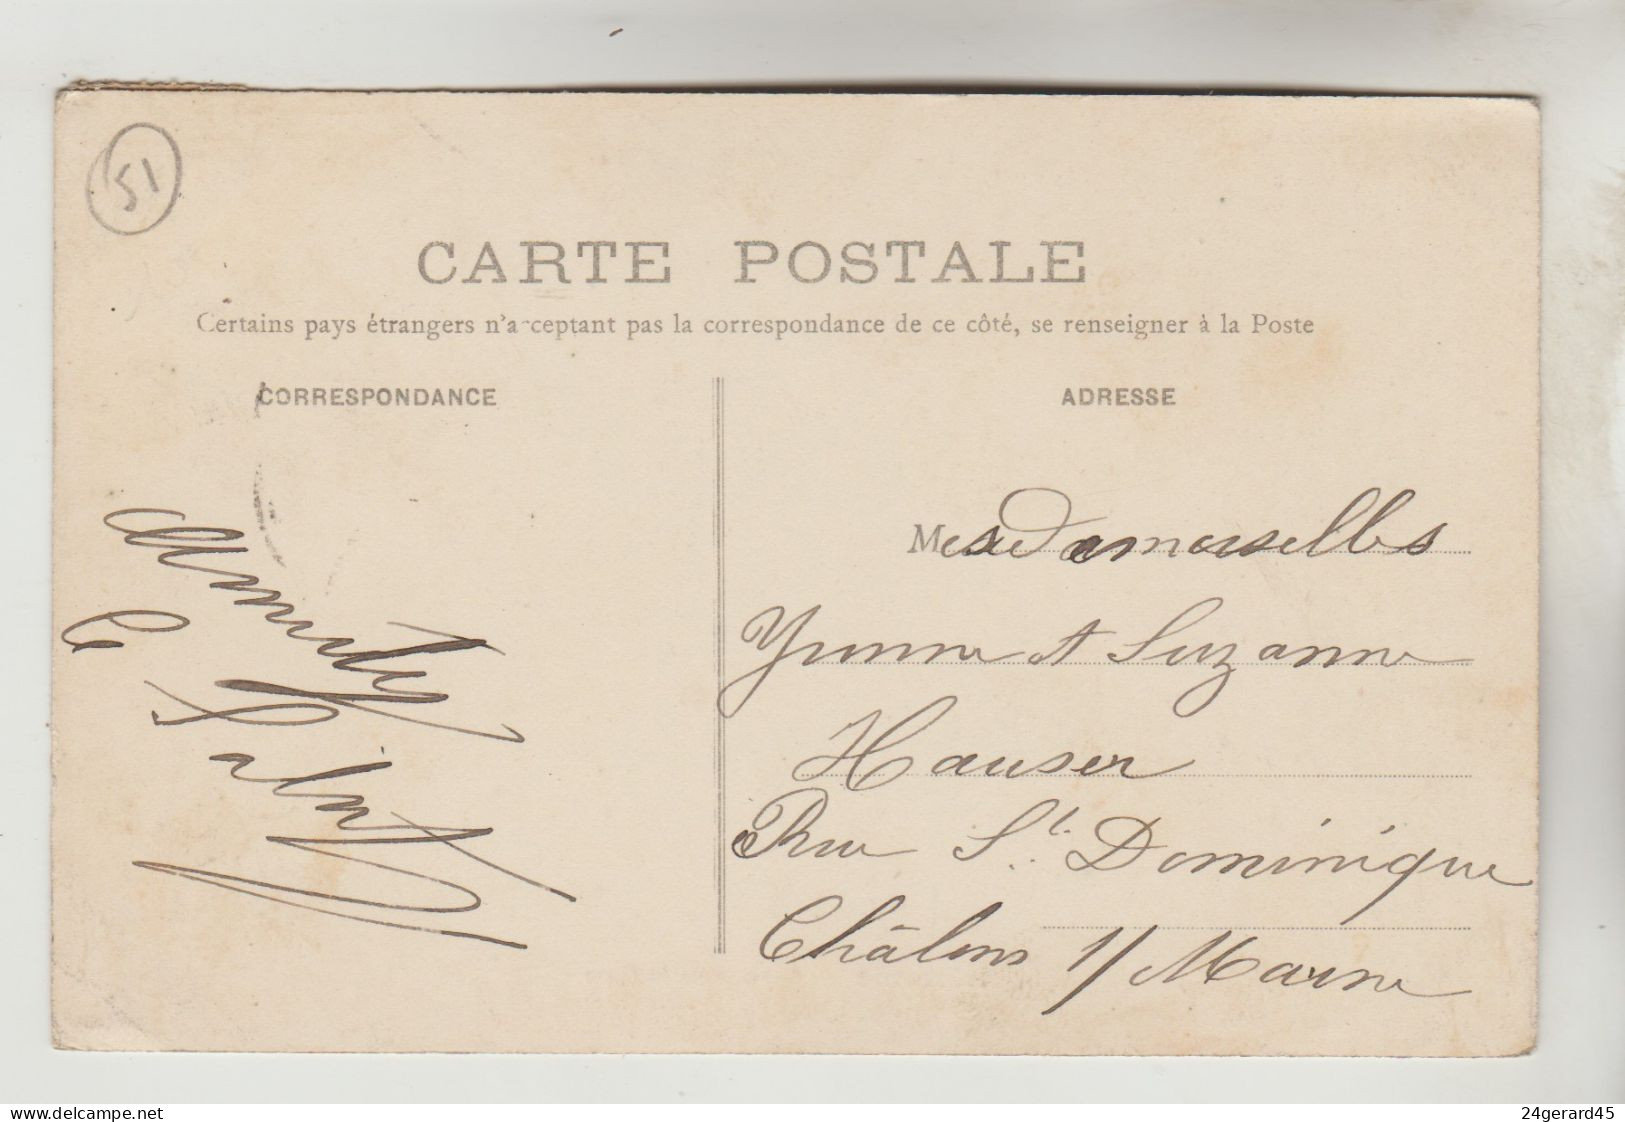 51
CARTE POSTALE
Certains pays étrangers n'acceptant pas la correspondance de ce côté, se renseigner à la Poste
CORRESPONDANCE
ADRESSE
Mesdemoiselles
Yvonne et Suzanne
Hauser
Rue St. Dominique
Châlons s/ Marne
delcampe.net
24gerard45